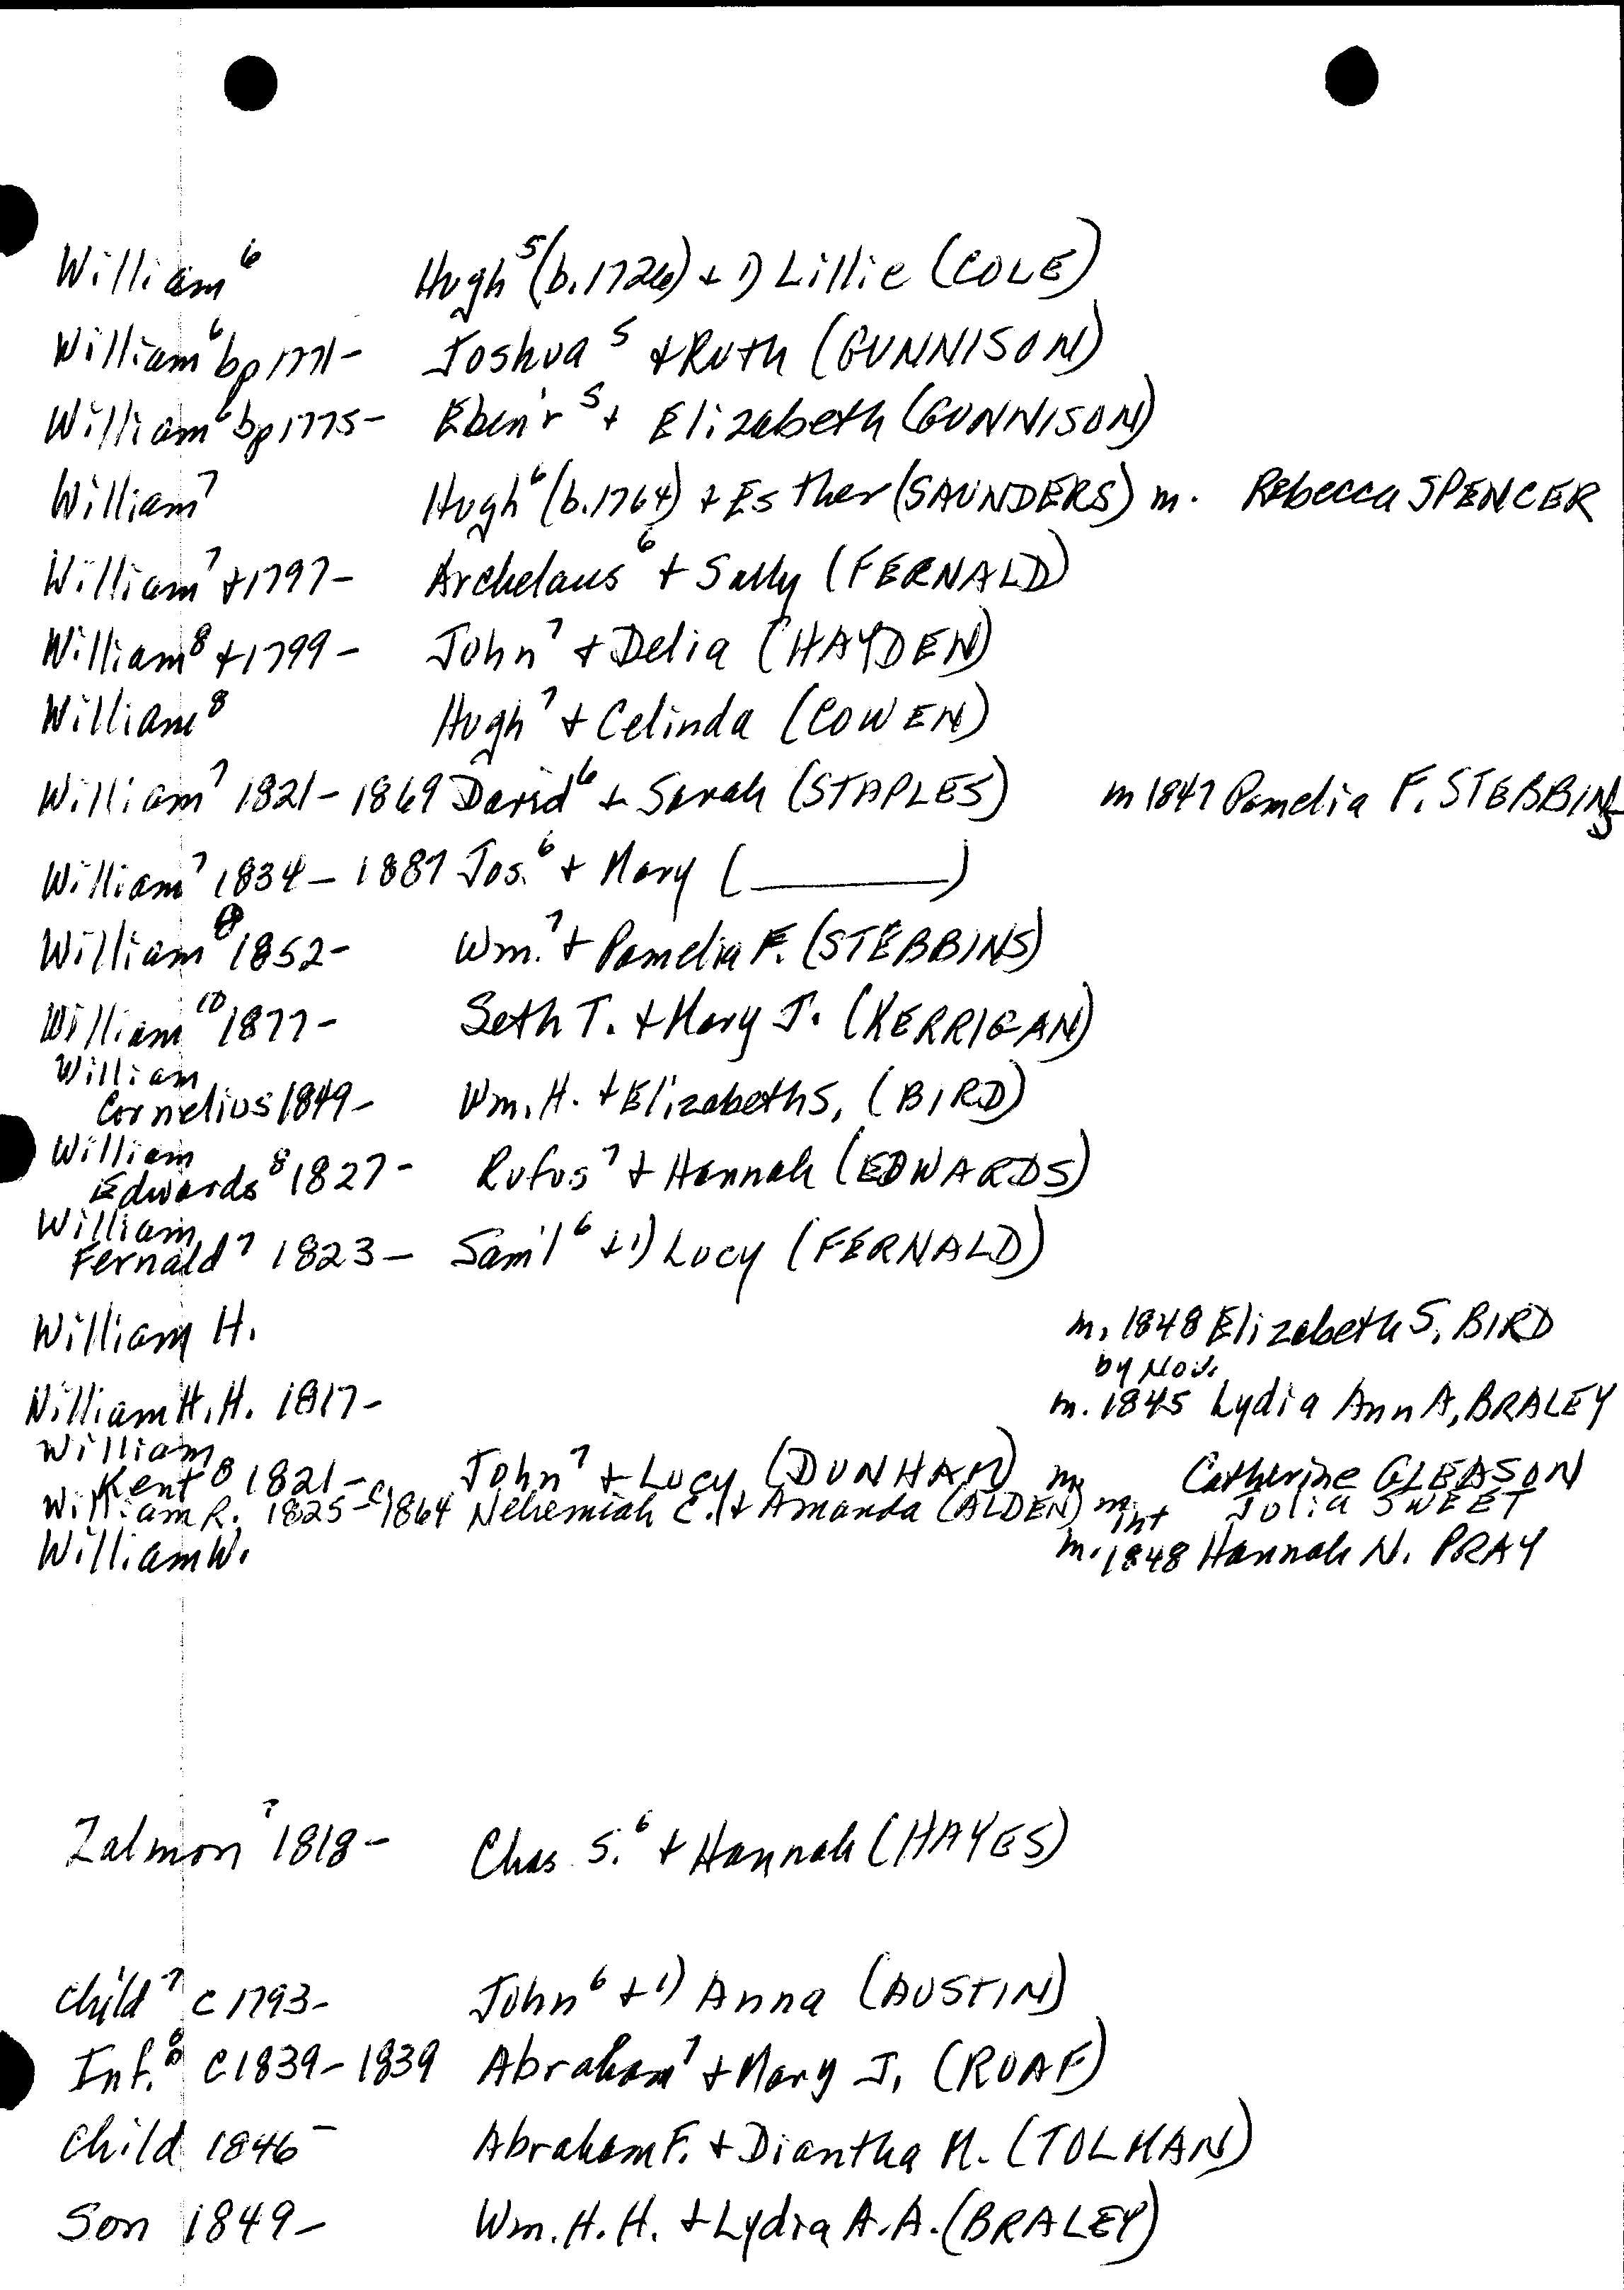 William⁶ Hugh⁵ (b.1726) + 1) Lillie (COLE)
William⁶ bp 1771- Joshua⁵ + Ruth (GUNNISON)
William⁶ bp 1775- Eben'r⁵ + Elizabeth (GUNNISON)
William⁷ Hugh⁶ (b.1764) + Esther (SAUNDERS) m. Rebecca SPENCER
William⁷ +1797- Archelaus⁶ + Sally (FERNALD)
William⁸ +1799- John⁷ + Delia (HAYDEN)
William⁸ Hugh⁷ + Celinda (COWEN)
William⁷ 1821-1869 David⁶ + Sarah (STAPLES) m 1847 Pamelia F. STEBBINS
William⁷ 1834-1887 Jos.⁶ + Mary (________)
William⁸ 1852- Wm.⁷ + Pamelia F. (STEBBINS)
William¹⁰ 1877- Seth T. + Mary J. (KERRIGAN)
William
Cornelius 1849- Wm. H. + Elizabeth S. (BIRD)
William
Edwards⁸ 1827- Rufus⁷ + Hannah (EDWARDS)
William
Fernald⁷ 1823- Sam'l⁶ + 1) Lucy (FERNALD)
William H. m. 1848 Elizabeth S. BIRD
by Nov.
William H. H. 1817- m. 1845 Lydia Ann A. BRALEY
William
Kent⁸ 1821- John⁷ + Lucy (DUNHAM) m. Catherine GLEASON
William R. 1825-c1864 Nehemiah C. + Amanda (ALDEN) m. int Julia SWEET
William W. m. 1848 Hannah N. PRAY
Zalmon⁷ 1818- Chas. S.⁶ + Hannah (HAYES)
Child⁷ c 1793- John⁶ + 1) Anna (AUSTIN)
Inf.⁸ c 1839-1839 Abraham⁷ + Mary J. (ROAF)
Child 1846- Abraham F. + Diantha M. (TOLMAN)
Son 1849- Wm. H. H. + Lydia A. A. (BRALEY)